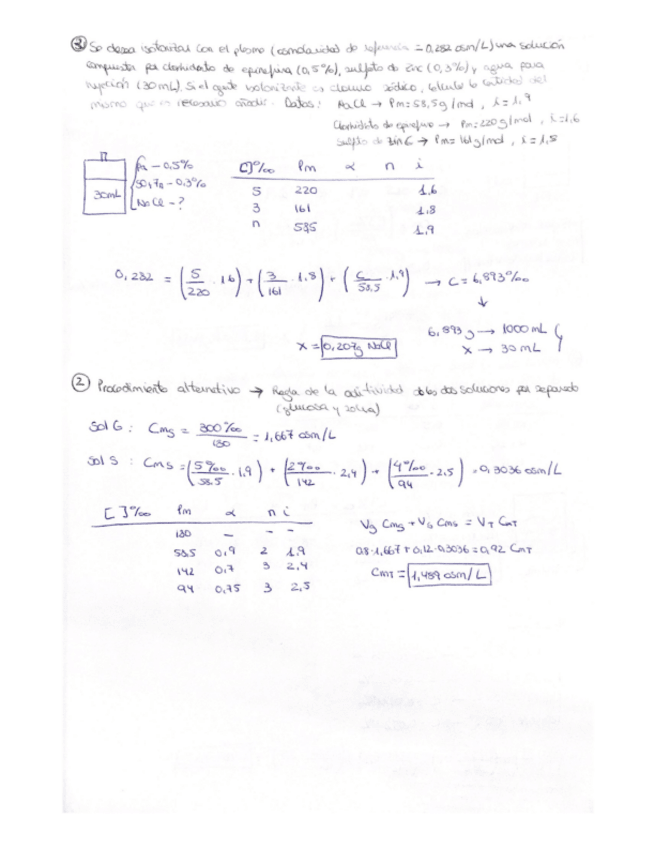 ③ Se desea isotonizar con el plasma (osmolaridad de referencia = 0,282 osm/L) una solución
compuesta por clorhidrato de epinefrina (0,5%), sulfato de zinc (0,3%) y agua para
inyección (30 mL). Si el agente isotonizante es cloruro sódico, calcula la cantidad del
mismo que es necesario añadir. Datos: NaCl → Pm = 58,5 g/mol, i = 1,9
Clorhidrato de epinefrina → Pm = 220 g/mol, i = 1,6
Sulfato de zinc → Pm = 161 g/mol, i = 1,8
30mL
- 0,5%
- 0,3%
NaCl - ?
[C]‰ Pm α n i
5 220 1,6
3 161 1,8
n 58,5 1,9
0,282 = (5/220 · 1,6) + (3/161 · 1,8) + (C/58,5 · 1,9) → C = 6,893‰
↓
6,893 g → 1000 mL
x → 30 mL
x = 0,207g NaCl
② Procedimiento alternativo → Regla de la aditividad de las dos soluciones por separado
(glucosa y salina)
Sol G: Cms = 300‰/180 = 1,667 osm/L
Sol S: Cms = (5‰/58,5 · 1,9) + (2‰/142 · 2,4) + (4‰/94 · 2,5) = 0,3036 osm/L
[ ]‰ Pm α n i
180 - - -
58,5 0,9 2 1,9
142 0,7 3 2,4
94 0,75 3 2,5
Vg Cmg + Vs Cms = VT CmT
0,8 · 1,667 + 0,12 · 0,3036 = 0,92 CmT
CmT = 1,489 osm/L